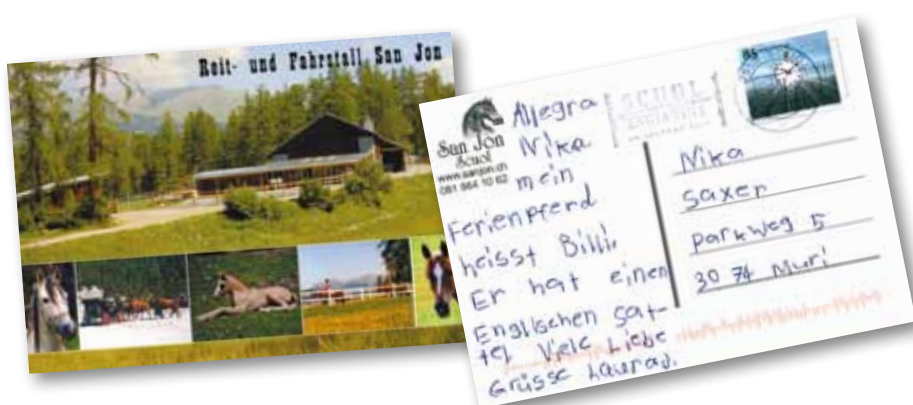 Reit- und Fahrstall San Jon
San Jon
Scuol
www.sanjon.ch
081 864 10 62
Allegra
Nika
mein
Ferienpferd
heisst Billi.
Er hat einen
Englischen Sat-
tel Viele Liebe
Grüsse
SCUOL
85
Nika
Saxer
parkweg 5
30 74 Muri